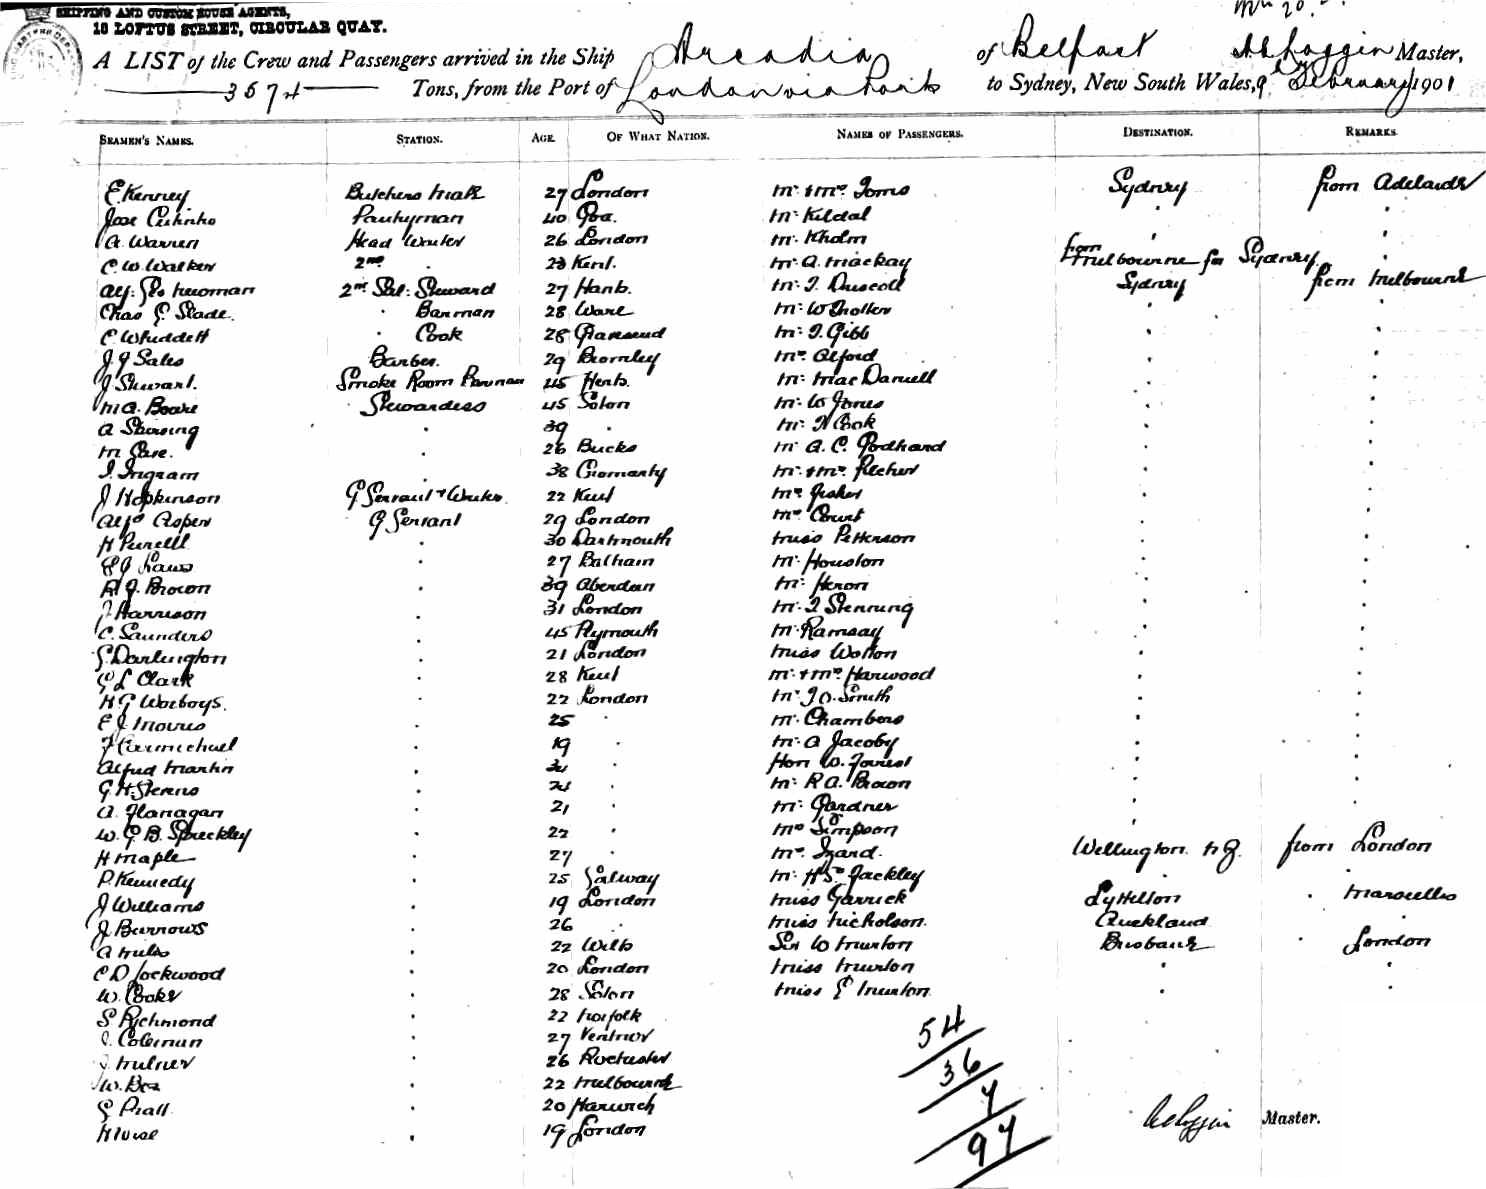 SHIPPING AND CUSTOM HOUSE AGENTS,
10 LOFTUS STREET, CIRCULAR QUAY.
A LIST of the Crew and Passengers arrived in the Ship Arcadia of Belfast Master,
3574 Tons, from the Port of London via Ports to Sydney, New South Wales, 9 February 1901
SEAMEN'S NAMES. STATION. AGE. OF WHAT NATION. NAMES OF PASSENGERS. DESTINATION. REMARKS.
E Kenney Butchers Mate 27 London Mr & Mrs Toms Sydney from Adelaide
Jose Pantryman 40 Goa. Mr Kildal
A. Warren Head Waiter 26 London Mr. Kholm
C. W. Walker 2nd 23 Kent. Mr A. Mackay from Melbourne for Sydney
Alf. Geo Newman 2nd Sal: Steward 27 Hants. Mr J. Driscoll Sydney from Melbourne
Chas G. Slade. Barman 28 Ware Mr W
C Whiddett Cook 28 Gravesend Mr J. Gibb
J. J Sales Barber. 29 Bromley Mrs Alford
J Stewart. Smoke Room Barman 45 Herts. Mr Mac Daniell
M. A. Boare Stewardess 45 Soton Mr W Jones
A 39 Mr Cook
M 26 Bucks Mr A. C. Godhard
J. Ingram 38 Cromarty Mr & Mrs
J Hopkinson G Servant & Writer 22 Kent Mrs Fisher
Alfd Asper G Servant 29 London Mrs Court
H Purcell 30 Dartmouth Miss Petterson
J Laws 27 Balham Mr Houston
A J. Brown 39 Aberdeen Mr Heron
J Harrison 31 London Mr J Stenning
C. Saunders 45 Plymouth Mr Ramsay
G Darlington 21 London Miss Wotton
G L Clark 28 Kent Mr & Mrs Harwood
H. G Worboys. 22 London Mr J. O. Smith
E J Morris 25 Mr. Chambers
J Carmichael 19 Mr. A Jacoby
Alfred Martin Hon W. Forrest
G. H. Sterns Mr R A. Brown
A. Flanagan 21 Mr Gardner
W. G. B. Spreckley 22 Mrs Simpson
H Maple 27 Mrs Izard. Wellington N Z. from London
P. Kennedy 25 Galway Mr H St Jackley
J Williams 19 London Miss Garrick Lyttelton Marseilles
J Burrows 26 Miss Nicholson. Auckland
A Mills 22 Wilts Sir W Brisbane London
C D Lockwood 20 London Miss
W. Cooke 28 Soton Miss E
S Richmond 22 Norfolk
J. Coleman 27 Ventnor
J. Milner 26 Rochester
W. Bea 22 Melbourne
G Pratt 20 Harwich
H 19 London
54
36
7
97
Master.